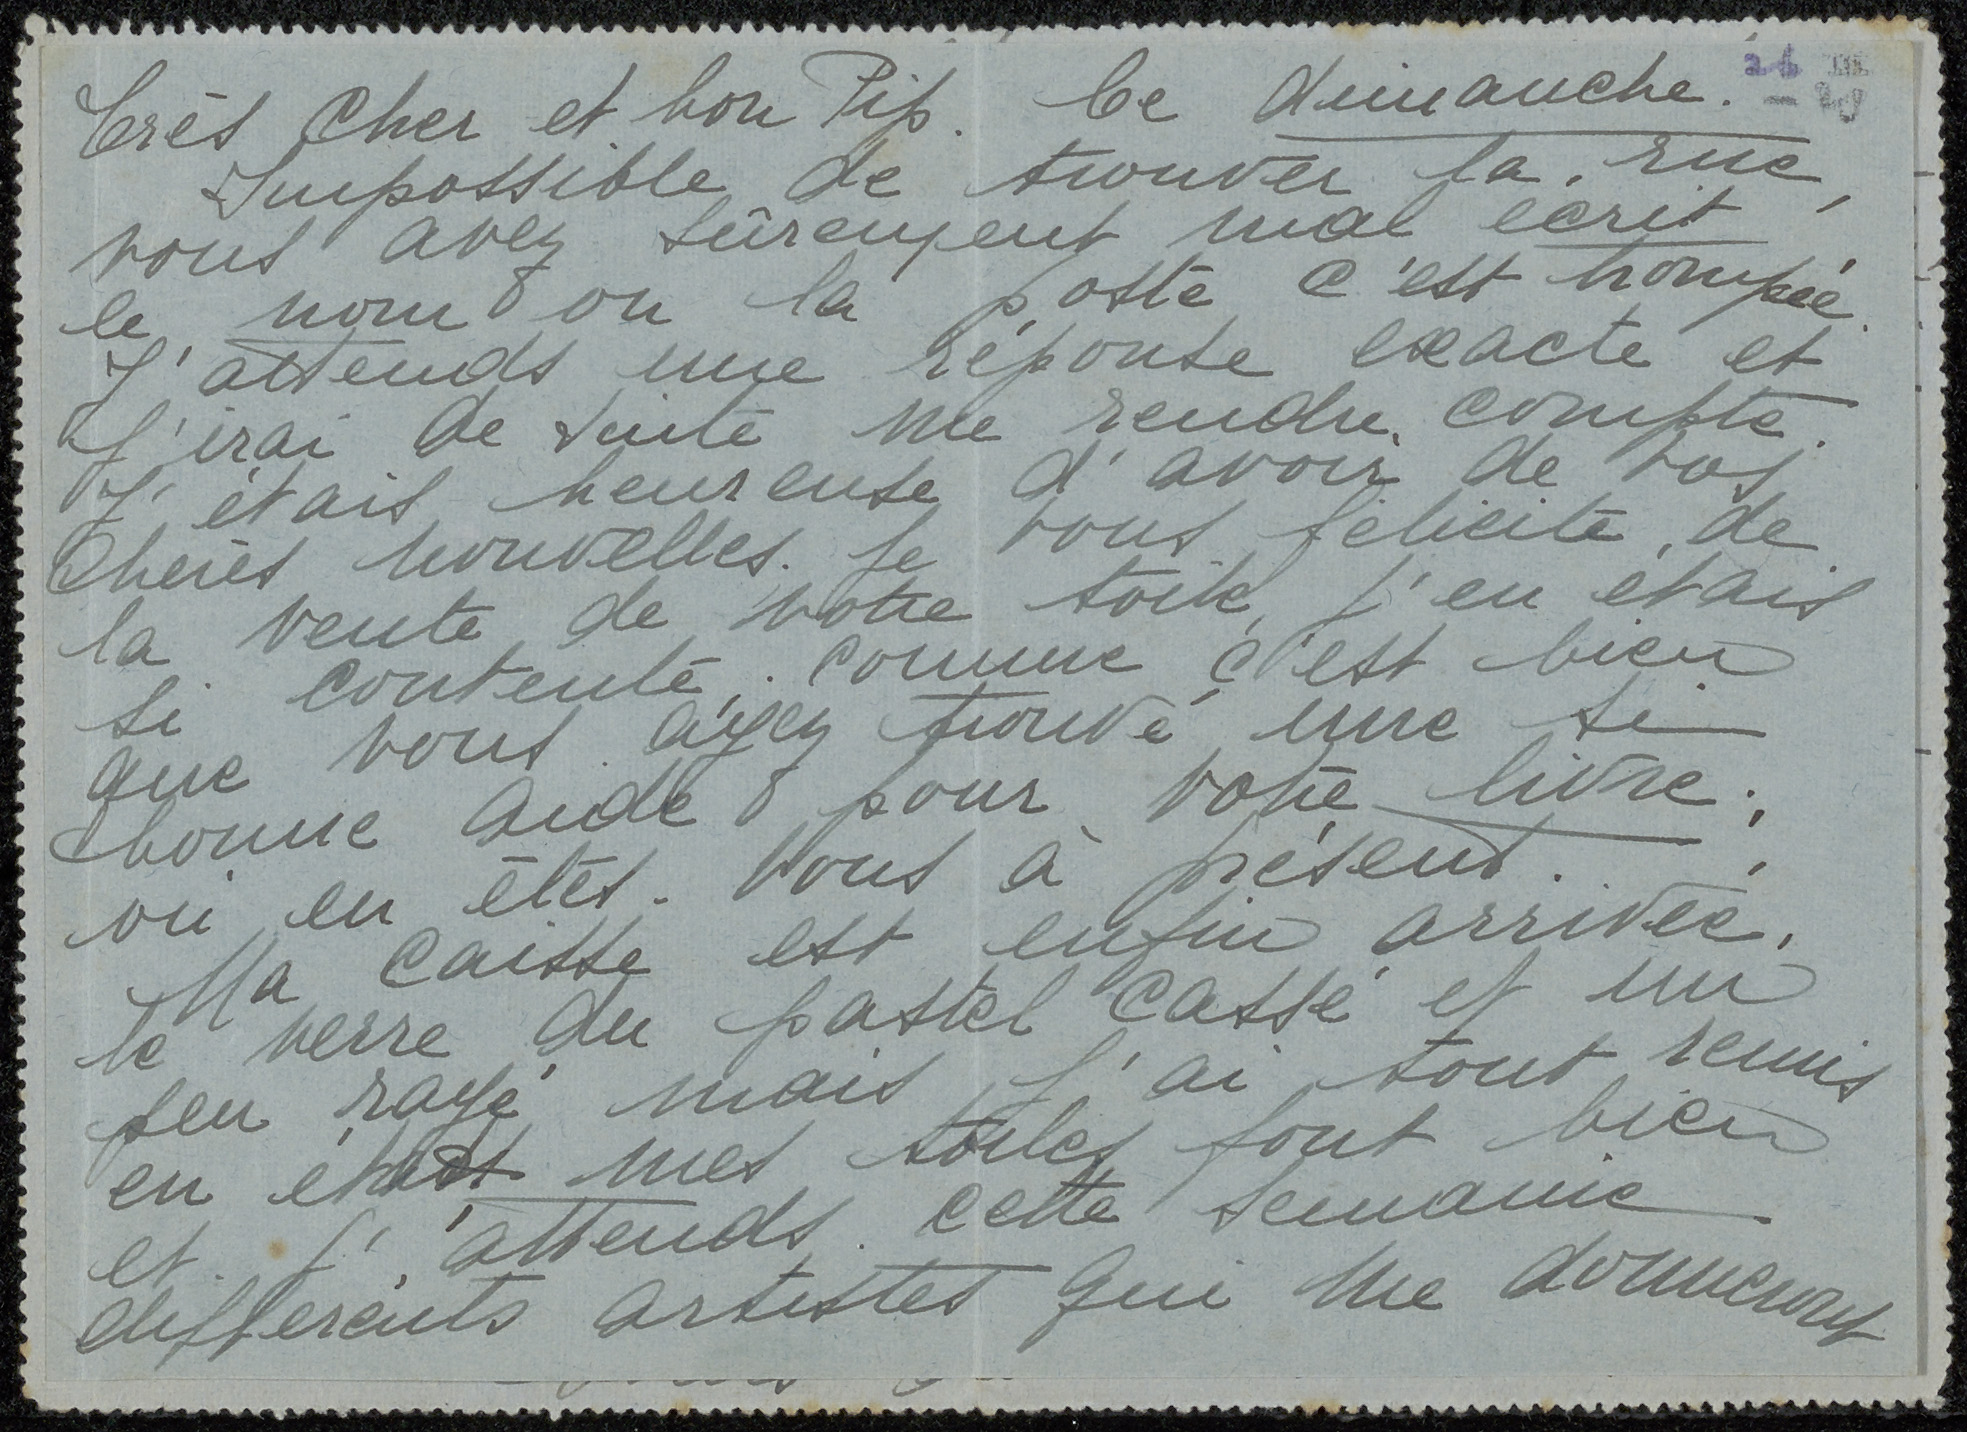 Très Cher et bon Pip. Ce dimanche.
Impossible de trouver la rue,
vous avez sûrement mal écrit
le nom ou la poste c'est trompée.
J'attends une réponse exacte et
j'irai de suite me rendre compte.
J'étais heureuse d'avoir de vos
chères nouvelles. Je vous félicite de
la vente de votre toile, j'en étais
si contente, comme c'est bien
que vous ayez trouvé une si
bonne aide pour votre livre,
où en êtes-vous à présent.
Ma caisse est enfin arrivée,
le verre du pastel cassé et un
peu rayé mais j'ai tout remis
en état mes toiles font bien
et j'attends cette semaine
différents artistes qui me donneront